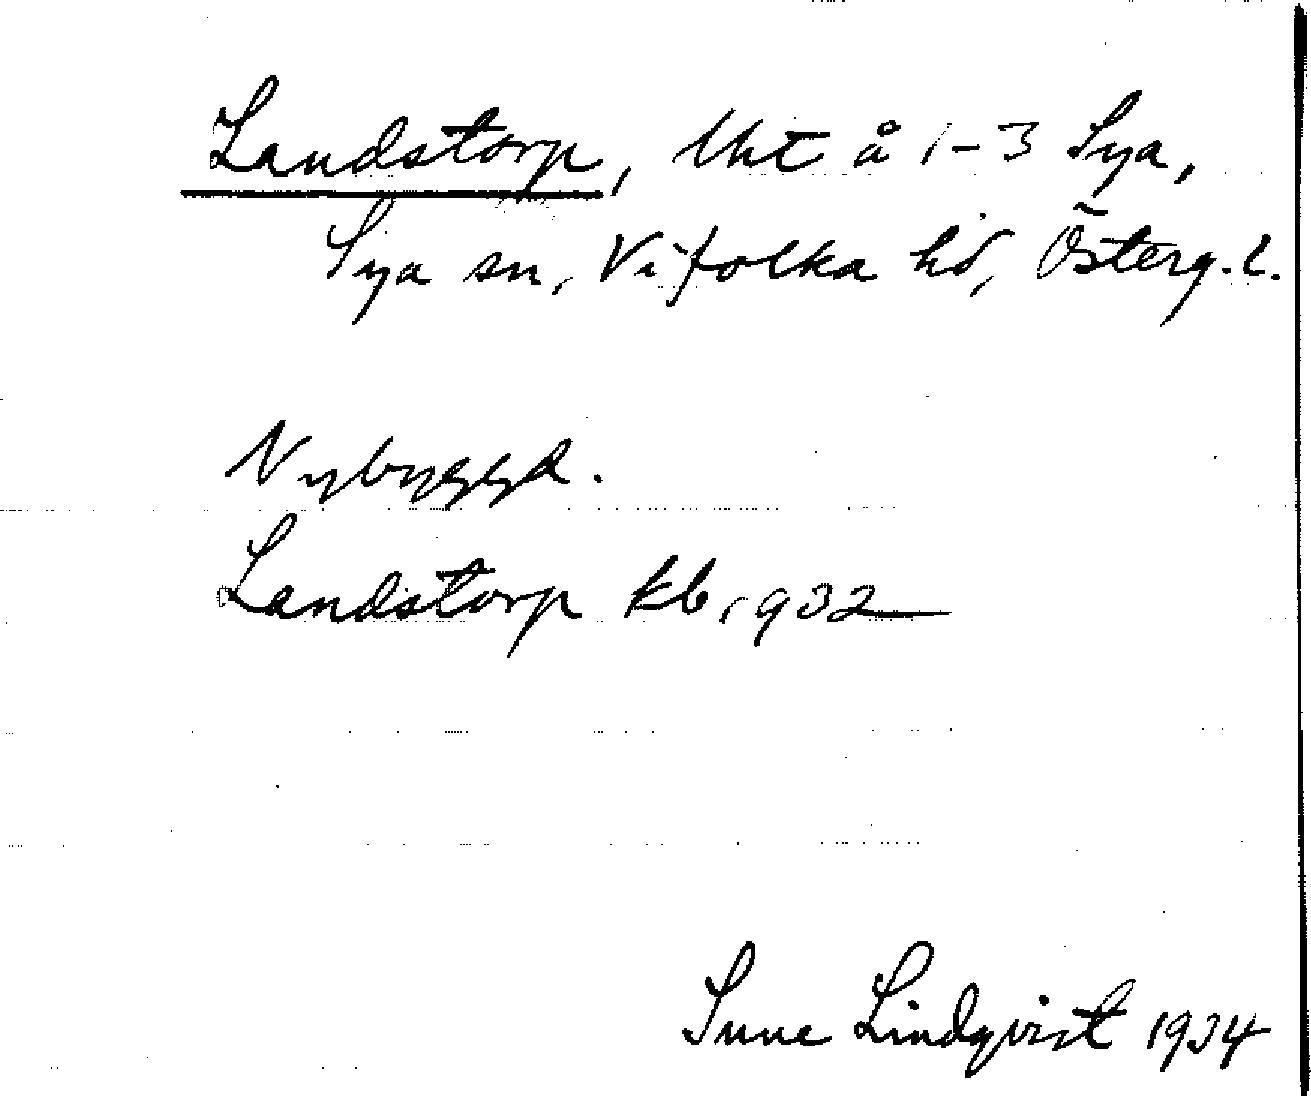 Landstorp, Uht å 1-3 Sya,
Sya sn, Vifolka hd, Österg. l.
Nybyggd.
Landstorp kb 1932
Sune Lindqvist 1934